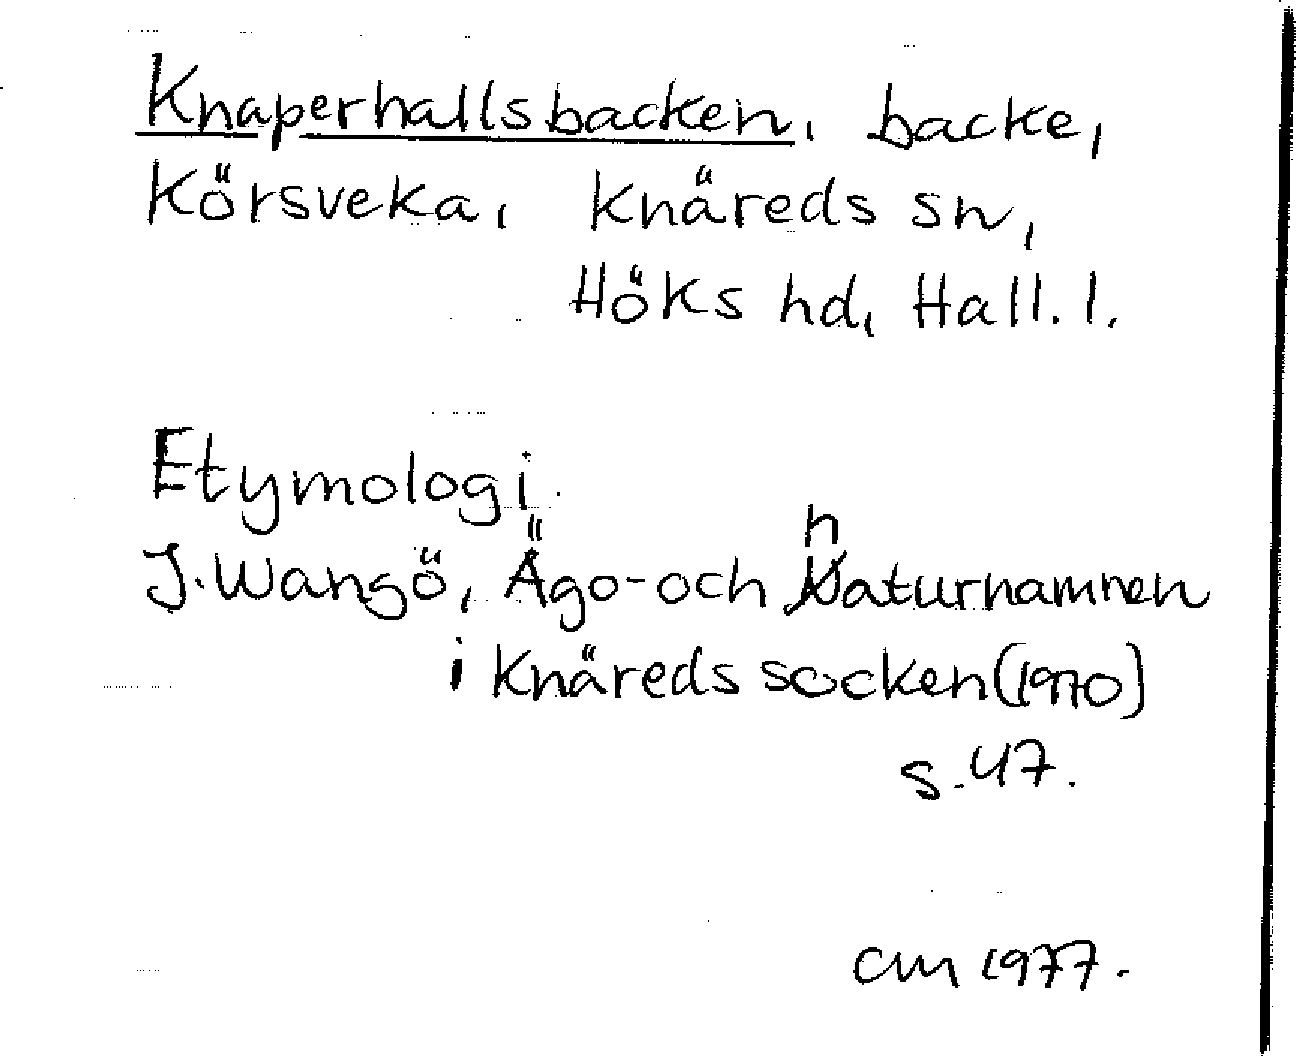 Knaperhallsbacken, backe,
Körsveka, Knäreds sn,
Höks hd, Hall. l.
Etymologi
J. Wangö, Ägo- och naturnamnen
i Knäreds socken (1970)
s. 47.
CM 1977.